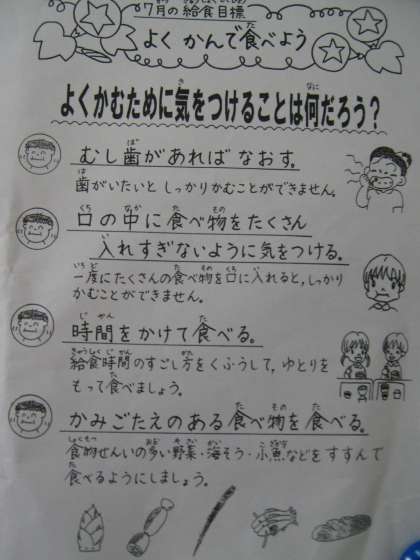 7月の給食目標
よくかんで食べよう
よくかむために気をつけることは何だろう？
むし歯があればなおす。
歯がいたいと しっかりかむことができません。
口の中に食べ物をたくさん
入れすぎないように気をつける。
一度にたくさんの食べ物を口に入れると、しっかり
かむことができません。
時間をかけて食べる。
給食時間のすごし方をくふうして、ゆとりを
もって食べましょう。
かみごたえのある食べ物を食べる。
食物せんいの多い野菜・海そう・小魚などをすすんで
食べるようにしましょう。